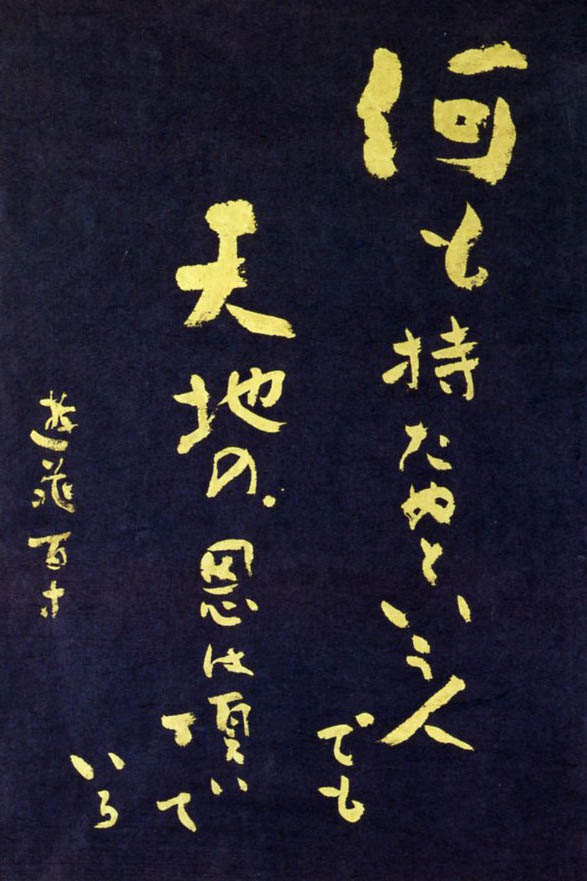 何も持たぬという人
でも
天地の恩は頂いて
いる
遊亀 百才